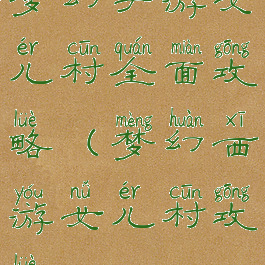 梦幻 游
ér cūn quán miàn gōng
儿村全面攻
lüè mèng huàn xī
略（梦幻西
yóu nǚ ér cūn gōng
游女儿村攻
lüè